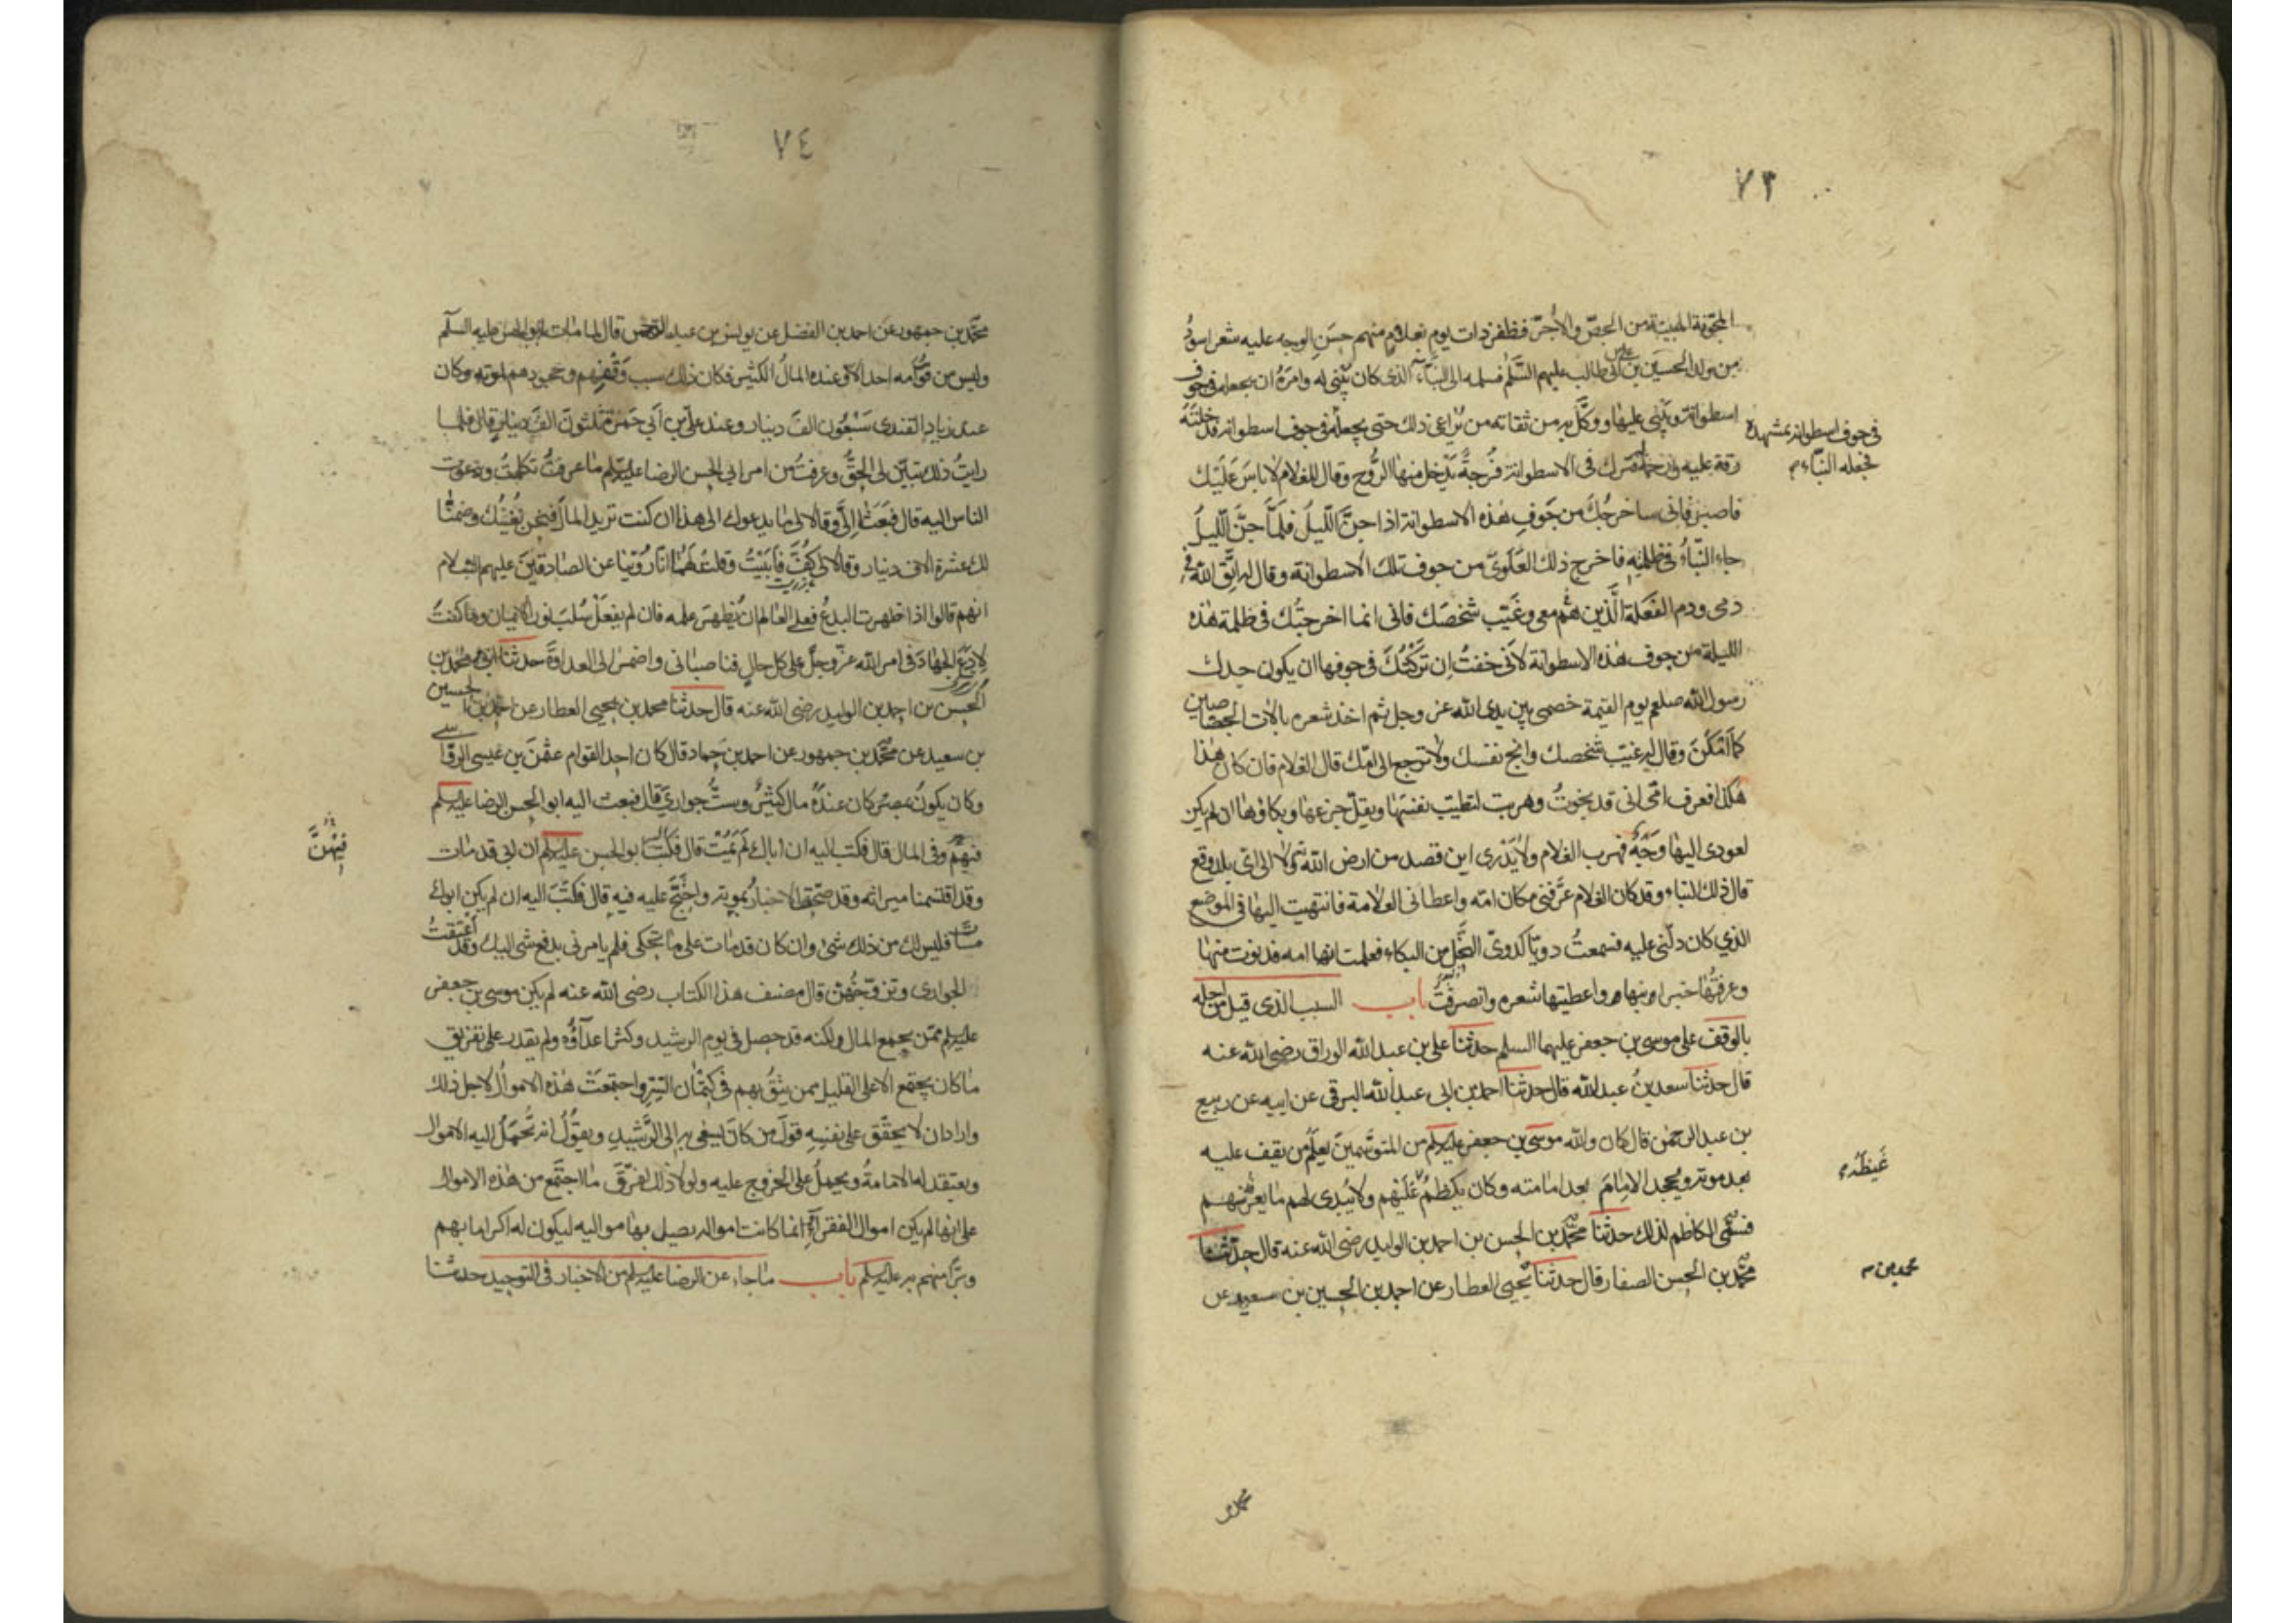 ٧٣
المجوفة المبنية من الجص والآجر فظفر ذات يوم بغلام منهم حسن الوجه عليه شعر اسود
من ولد الحسين بن علي بن ابي طالب عليهم السلم فسلمه الى البنّاء الذى كان يبنى له وامره ان يجعله فى جوف
اسطوانة ويبنى عليها ووكّل به من ثقاته من يراعى ذلك حتى يجعله فى جوف اسطوانة فدخلته
فى جوف اسطوانة بمشهده
فجعله البنّاء
رقة عليه ورحمة فترك فى الاسطوانة فُرجةً يدخل منها الرَّوح وقال للغلام لا باسَ عَلَيْك
فاصبر فانى ساخرجُكَ من جَوفِ هذه الاسطوانة اذا جنّ اللّيلُ فلَمّا جنَّ اللّيلُ
جاء البنّاءُ فى ظلمتِه فاخرج ذلك العَلَوىّ من جوف تلك الاسطوانة وقال له اتّق الله فى
دمى ودم الفَعَلة الَّذين هُمْ معى وغَيّب شخصَك فانى انما اخرجتُك فى ظلمة هذه
الليلة من جوف هذه الاسطوانة لانى خفتُ ان تَرَكْتُكَ فى جوفها ان يكون جدك
رسول الله صلعم يوم القيمة خصمى بين يدى الله عز وجل ثم اخذ شعره بالات الجصاصين
كما اَمْكَنَ وقال له غيّب شخصك وانج نفسك ولا ترجع الى امّك قال الغلام فان كان هذا
هكذا فعرف امّى انى قد نجوتُ وهربت لتطيب نفسها ويقلّ جزعها وبكاؤها ان لم يكن
لعودى اليها وَجْهٌ فهرب الغلام ولا يَدْرى اين قصد من ارض الله ولا الى اىّ بلد وقع
قال ذلك البنّاء وقد كان الغلام عرَّفنى مكان امّه واعطانى العلامة فانتهيت اليها فى الموضع
الذي كان دلّنى عليه فسمعتُ دويّا كدوىّ النّحل من البكاء فعلمت انها امه فدنوت منها
وعرفتُها خبر ابنها واعطيتها شعره وانصرفتُ باب السبب الذى قيل من اجله
بالوقف على موسى بن جعفر عليهما السلم حدثنا على بن عبد الله الوراق رضى الله عنه
قال حدثنا سعد بنُ عبد الله قال حدثنا احمد بن ابى عبد الله البرقى عن ابيه عن ربيع
بن عبد الرحمن قال كان والله موسى بن جعفر عليه السلم من المتوسّمين يعلمُ من يقف عليه
بعد موته ويجحد الامامَ بعد امامته وكان يكظم غَيْظَهُ عَلَيْهم ولا يُبدى لهم ما يعرفه منهم
غَيظَهُ
فسمّى الكاظم لذلك حدثنا محمّد بن الحسن بن احمد بن الوليد رضى الله عنه قال حدّثنا
محمّد بن الحسن الصفار قال حدثنا يحيى العطار عن احمد بن الحسين بن سعيد عن
محمد بن
محمد
٧٤
محمّد بن جمهور عن احمد بن الفضل عن يونس بن عبد الرحمن قال لما مات ابو الحسن عليه السلم
وليس من قوّامه احد الا وعنده المالُ الكثير فكان ذلك سبب وَقْفِهم وجحودهم لموته وكان
عند زياد القندى سَبْعُون الفَ دينار وعند علي بن أبي حمزة ثلثونَ الفَ دينار قال فلما
رايتُ ذلك تبيّن لى الحقُّ وعرفتُ من امر ابي الحسن الرضا عليه السلم ما عرفتُ تكلمتُ ودعوت
الناس اليه قال فبَعَثا اِلَىَّ وقالا لى ما يدعوك الى هذا ان كنت تريد المال فنحن نُغْنيك وضمنا
لك عشرة الاف دينار وقالا لى كُفَّ فاَبَيْتُ وقلت لهما انّا رُوّينا عن الصادقين عليهم السلام
انهم قالوا اذا ظهرت البدعُ فعلى العالم ان يُظهرَ علمه فان لم يفعَلْ سُلبَ نور الايمان وما كنتُ
لِادعَ الجهادَ فى امر الله عزّ وجلّ على كل حالٍ فناصبانى واضمرا لى العداوَةَ حدثنا ابى ومحمد بن
الحسن بن احمد بن الوليد رضى الله عنه قال حدثنا محمد بن يحيى العطار عن احمد بن الحسين
بن سعيد عن محمّد بن جمهور عن احمد بن حماد قال كان احد القوام عثمنَ بن عيسى الرؤاسى
وكان يكونُ بمصر كان عندَهُ مال كثيرٌ وستُّ جوارىَ قال فبعث اليه ابو الحسن الرضا عليه السلم
فيهم وفى المال قال فكتب اليه ان اباك لَمْ يَمُتْ قال فكتب ابو الحسن عليه السلم ان ابى قد مات
فِيْهِنَّ
وقد اقتسمنا ميراثه وقد صحّت الاخبارُ بموته واحتجّ عليه فيه قال فكتَبَ اليه ان لم يكن ابوك
مات فليس لك من ذلك شئ وان كان قد مات على ما تحكى فلم يامرنى بدفع شئ اليك وقد أعتقتُ
الجوارى وتزوّجتُهُنّ قال مصنف هذا الكتاب رضى الله عنه لم يكن موسى بن جعفر
عليه السلم ممّن يجمع المال ولكنه قد حصل فى يوم الرشيد وكثر اعدآؤُه ولم يقدر على تفريق
ما كان يجتمع الا على القليل ممن يثقُ بهم فى كتمان السّرّ واجتمعَتْ هذه الاموالُ لاجل ذلك
واراد ان لا يحقّق على نفسِه قولَ من كانَ يسعى به الى الرَّشيدِ ويقُوْلُ انه تُحْمَلُ اليه الاموال
ويعتقد له الامامةُ ويحملُ على الخروج عليه ولولا ذلك لفرّقَ ما اجتَمَعَ من هذه الاموال
على انها لم يكن اموال الفقراءِ انما كانت امواله يصل بها مواليه ليكون له اكراما بهم
وبرّا منهم به عليه السلم باب ما جاء عن الرضا عليه السلم من الاخبار فى التوحيد حدثنا